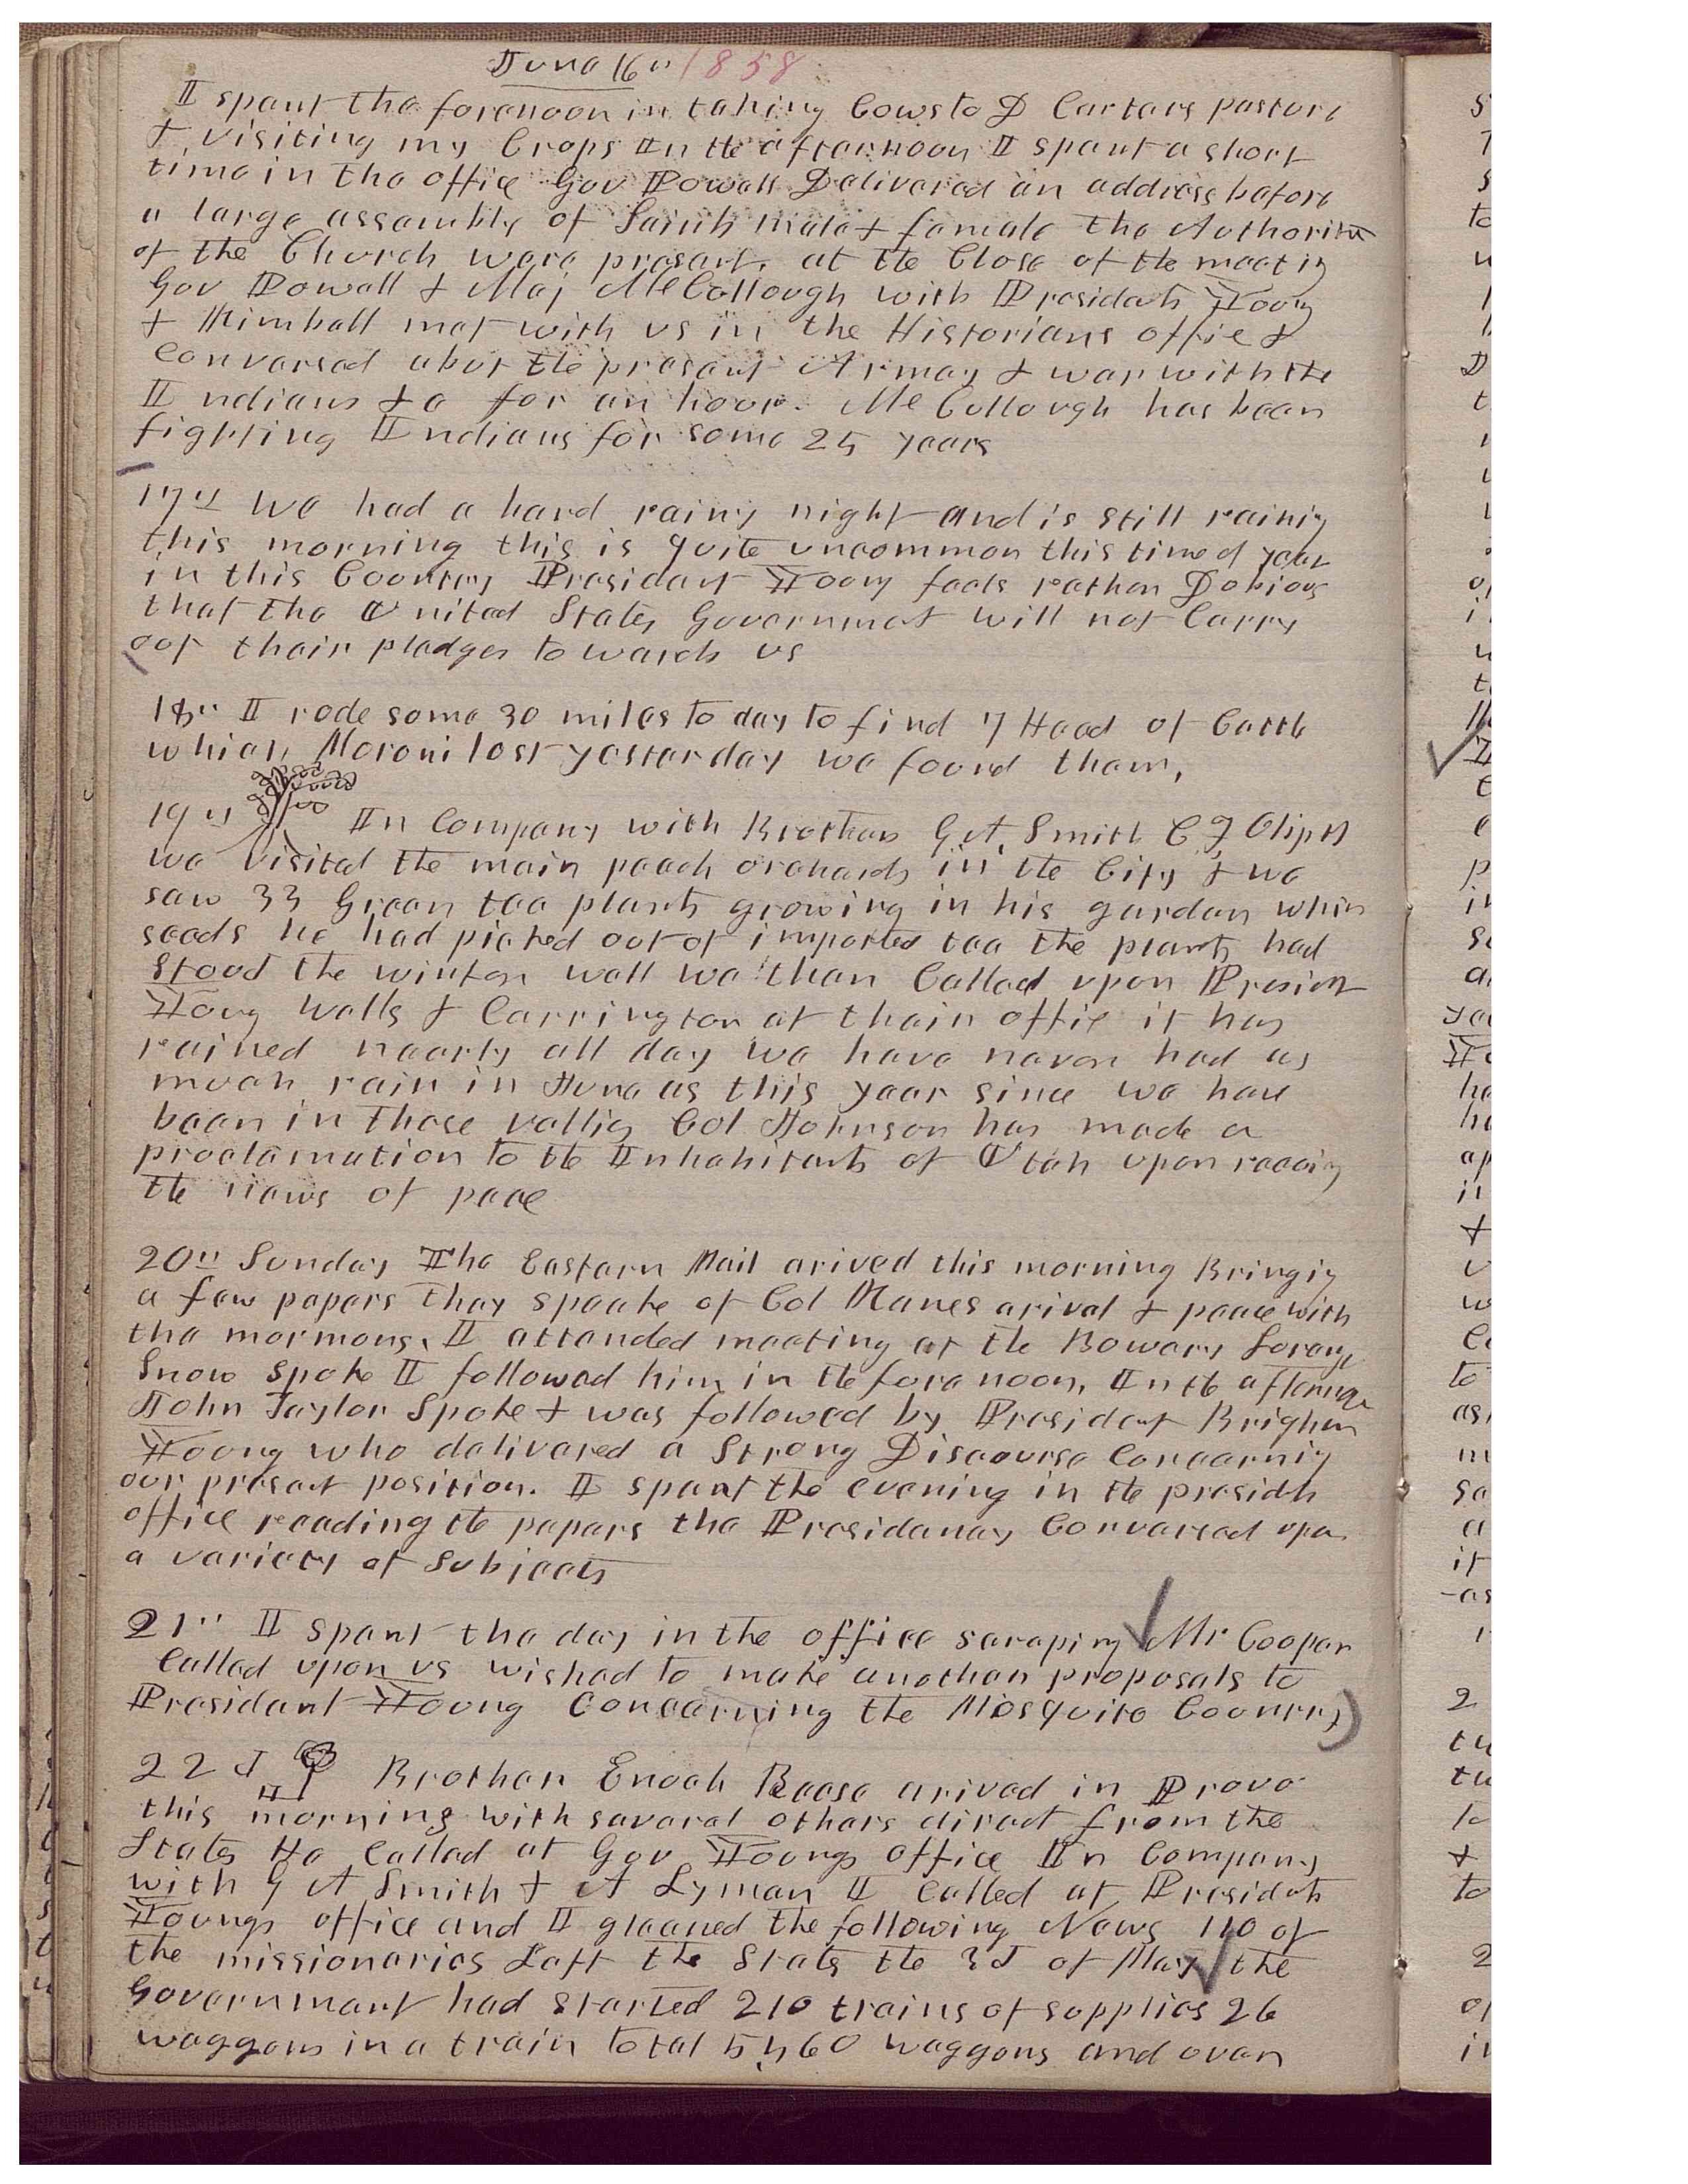 June 16th 1858
I spent the forenoon in taking Cows to D Carters pasture
& visiting my Crops In the afternoon I spent a short
time in the office Gov Powell Delivered an address before
a large assembly of Saints male & female the Authorities
of the Church were present. at the Close of the meeting
Gov Powell & Maj McCollough with Presidents Young
& Kimball met with us in the Historians office &
Conversed about the present Armay & war with the
Indians &c for an hour. McCullough has been
fighting Indians for some 25 years
17th We had a hard rainy night and is still rainig
this morning this is quite uncommon this time of year
in this Country President Young feels rather Dubious
that the United States Governmet will not Carry
out their pledges towards us
18th I rode some 30 miles to day to find 7 Head of Cattle
which Moroni lost yesterday we found them,
19th In Company with Brothers G. A. Smith C J Olipht
we visited the main peach orchards in the City & we
saw 33 Green tea plants growing in his garden which
seeds he had picked out of imported tea the plants had
stood the winter well we then Called upon Presidet
Young Wells & Carrington at their office it has
rained nearly all day we have never had as
much rain in June as this year since we have
been in these vallies Col Johnson has made a
proclamation to the Inhabitants of Utah upon receiving
the news of peace
20th Sunday The Eastern Mail arived this morning Bringing
a few papers they speake of Col Kanes arival & peace with
the mormons. I attended meeting at the Bowery Lorenzo
Snow spoke I followed him in the forenoon, In the afternoon
John Taylor Spoke & was followed by President Brigham
Young who delivered a Strong Discourse Concerning
our present position. I spent the evening in the presidets
office reading the papers the Presidency Conversed upon
a variety of Subjects
21st I spent the day in the office scraping Mr Cooper
Called upon us wished to make another proposals to
President Young Concerning the Mosquito Country)
22d Brother Enoch Reese arived in Provo
this morning with several others direct from the
States He Called at Gov Youngs office In Company
with G A Smith & A Lyman I Called at Presidets
Youngs office and I gleaned the following News 110 of
the missionaries Left the States the 3d of May the
Government had started 210 trains of supplies 26
waggons in a train total 5,460 waggons and over